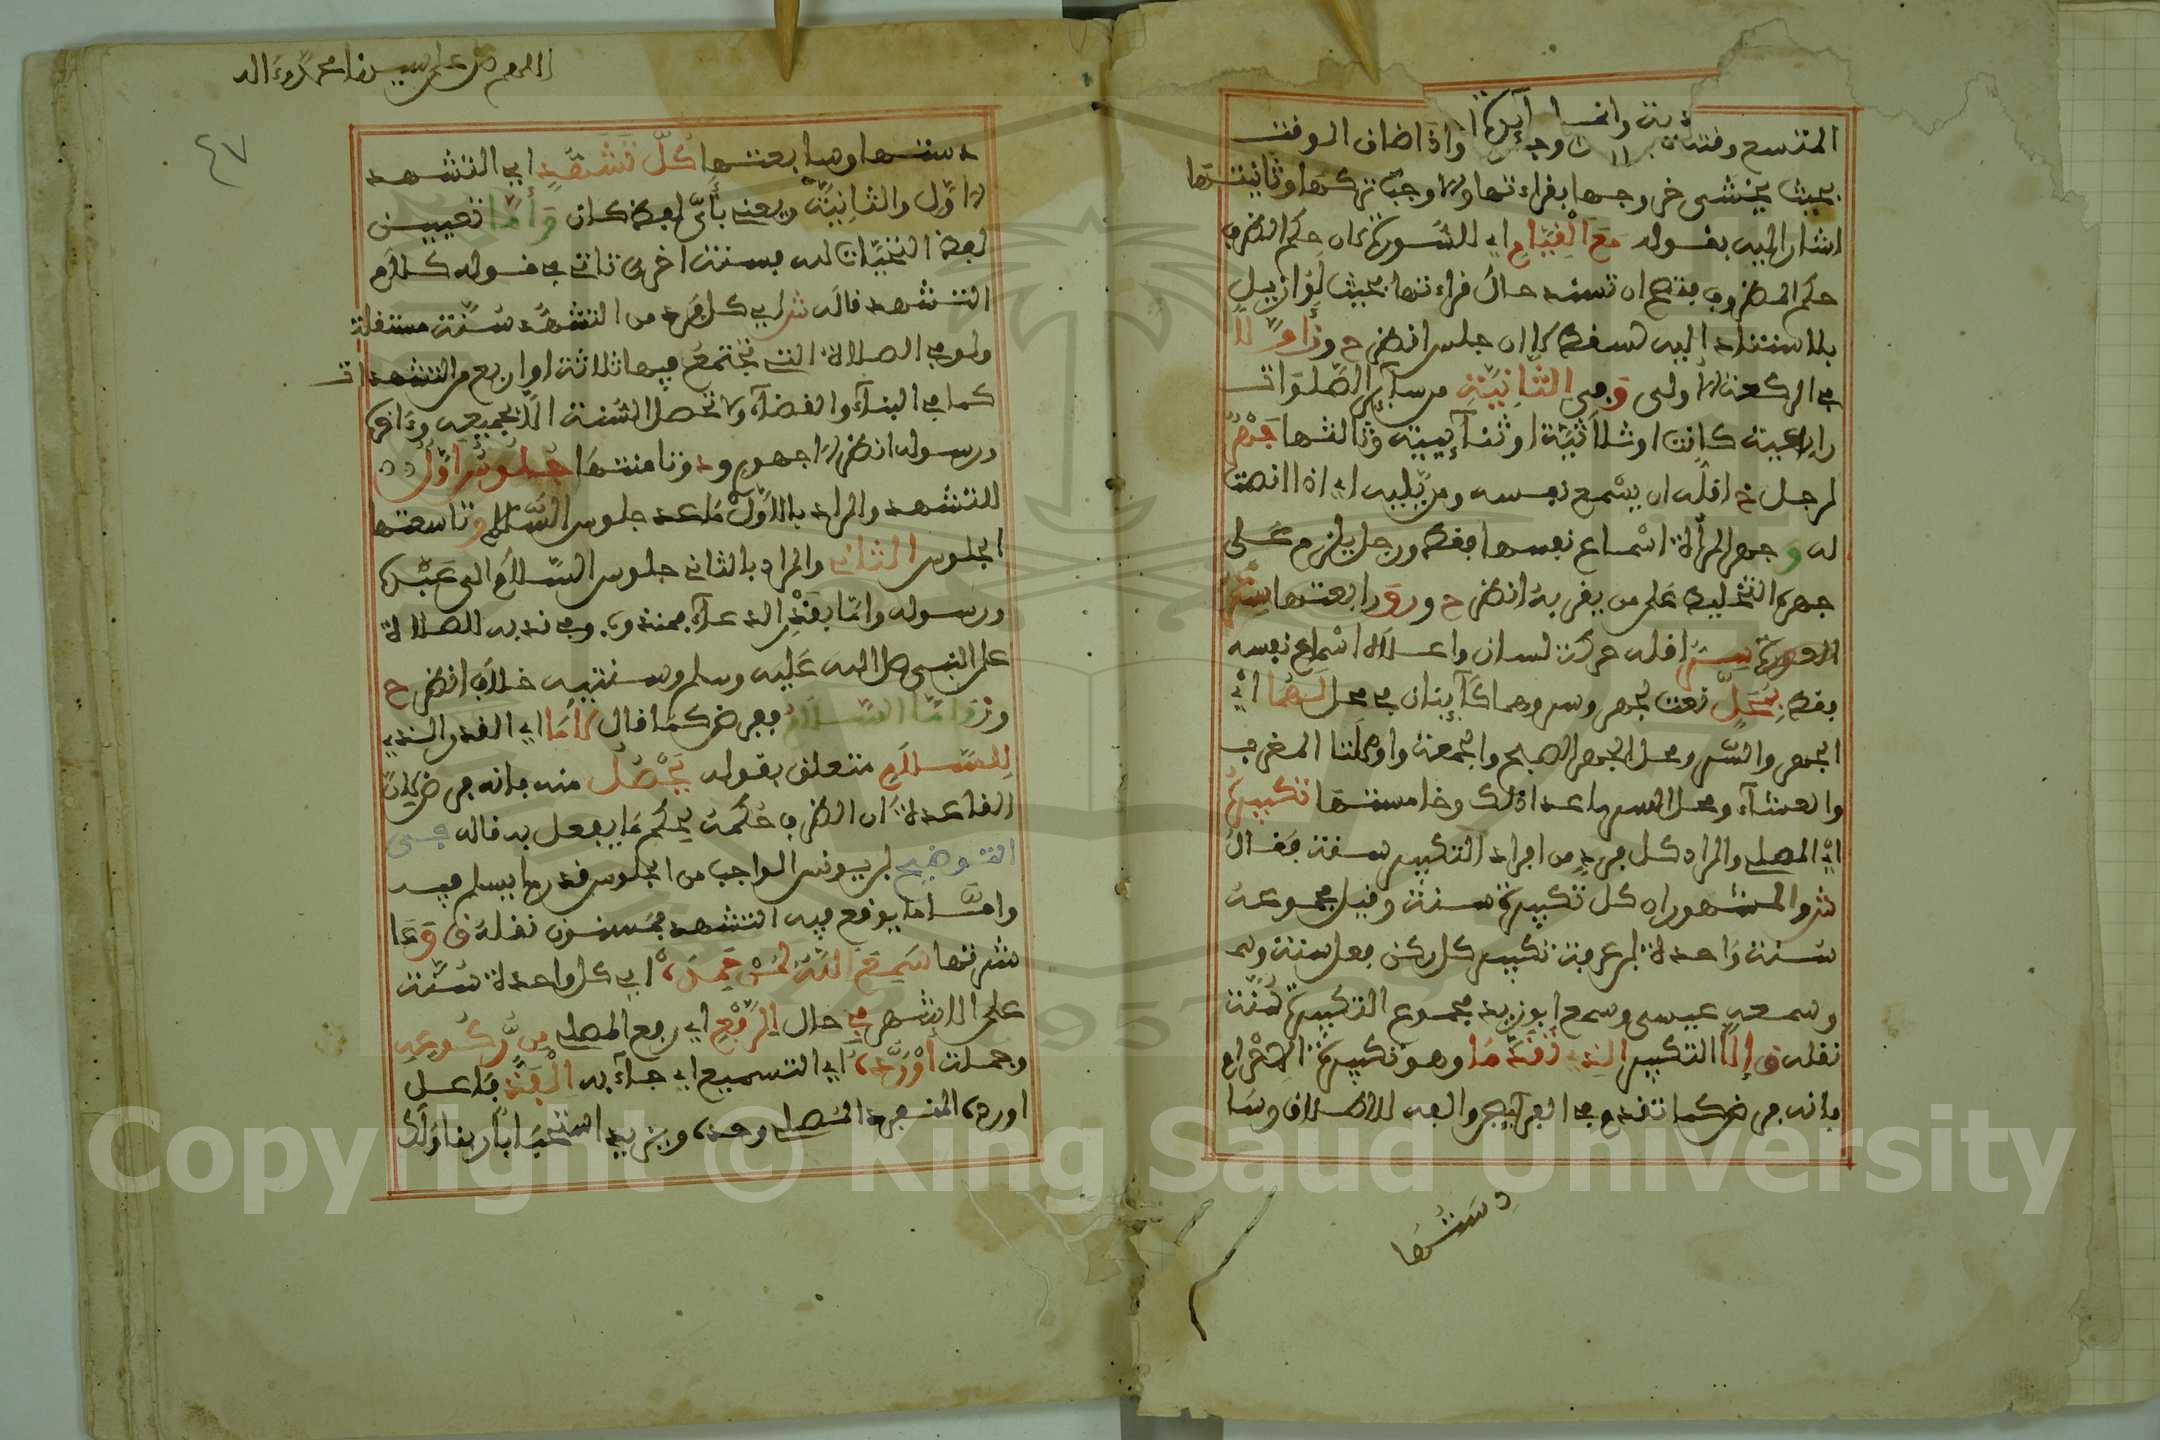 المتسع وقته
بحيث يخشى خروجها بقراءتها والا وجب تركها وثانيتها
اشار اليه بقوله مع القيام اي للسورة لان حكم الظرف
حكم المظروف فتصح ان تستند حال قراءتها بحيث لو ازيل
بلاستناد اليه لسقط لا ان جلس انظر ح و ز او لا
في الركعة الاولى وفي الثانية من سائر الصلوات
رباعية كانت او ثلاثية او ثنائية وثالثها جهر
لرجل اقله ان يسمع نفسه ومن يليه اي اذا انصت
له و جهر المرأة اسماع نفسها فقط ورجل يلزم على
جهره التخليط على من يقربه انظر ح ورابعتها سر
اقله حركة لسان واعلاه اسماع نفسه
فقط بمحل نعت لجهر وسر وهما كائنان في محل لهما اي
الجهر والسر ومحل الجهر الصبح والجمعة واولتا المغرب
والعشاء ومحل السر ما عدا ذلك وخامستها تكبيره
اي المصلي والمراد كل فرد من افراد التكبير سنة فقال
والمشهور ان كل تكبيرة سنة وقيل مجموعه
سنة واحدة ابن عرفة تكبير كل ركن فعل سنة
وسمعه عيسى وسمع ابو زيد مجموع التكبيرة سنة
نقله ق الا التكبير الذي تقدما وهو تكبيرة الاحرام
فانه فرض كما تقدم في الفرائض والفه للاطلاق وسا
دستها
اللهم صل على سيدنا محمد وءاله
٤٧
دستها وسابعتها كل تشهد اي التشهد
الاول والثانية ويعني بأي لفظ كان واما تعيين
لفظ التحيات لله فسنة اخرى تاتي في قوله كلام
التشهد قاله اي كل فرد من التشهد سنة مستقلة
ولو في الصلاة التي تجتمع فيها ثلاثة او اربع من التشهدات
كما في البناء والقضاء ولا تحصل السنة الا بجميعه وءاخره
ورسوله انظر الاجهوري وثامنتها جلوس اول
للتشهد والمراد بالاول ما عدا جلوس السلام وتاسعتها
الجلوس الثاني والمراد بالثاني جلوس السلام الى عبده
ورسوله واما بقدر الدعاء فمندوب وفي ندبه للصلاة
على النبي صلى الله عليه وسلم وسنتيه خلاف انظر ح
و ز واما السلام ففرض كما قال لا ما اي القدر الذي
للسلام متعلق بقوله يحصل منه فانه فرض لان
القاعدة ان الظرف حكمه بحكم ما يفعل به قاله في
التوضيح ابن يونس الواجب من الجلوس قدر ما يسلم فيه
واما ما يوقع فيه التشهد فمسنون نقله ق وعا
شرتها سمع الله لمن حمده اي كل واحدة سنة
على الاشهر في حال الرفع اي رفع المصلي من ركوعه
وجملة اورده اي التسميع اي جاء به الفذ فاعل
اورده المنفرد المصلي وحده ويزيد استحبابا ربنا ولك